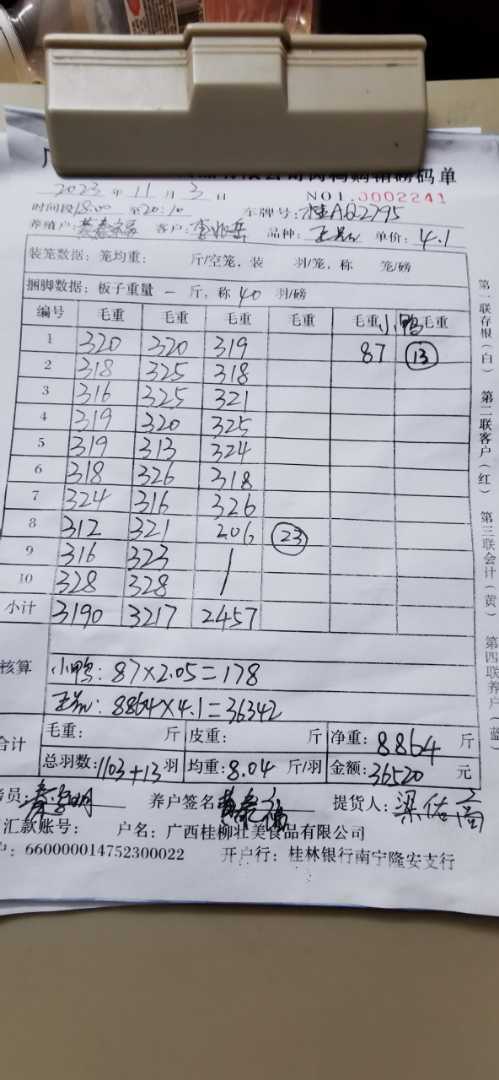 磅码单
2023年11月3日 NO1.0002241
时间段18:00至20:10 车牌号:桂A Q2795
养殖户: 客户: 品种:正 单价:4.1
装笼数据:笼均重: 斤/空笼,装 羽/笼,称 笼/磅
捆脚数据:板子重量 一 斤,称 40 羽/磅
编号 毛重 毛重 毛重 毛重 毛重 小鸭 毛重
1 320 320 319 87 13
2 318 325 318
3 316 325 321
4 319 320 325
5 319 313 324
6 318 326 318
7 324 316 326
8 312 321 206 23
9 316 323 /
10 328 328 /
小计 3190 3217 2457
核算 小鸭:87×2.05=178
正:8864×4.1=36342
合计 毛重: 斤 皮重: 斤 净重:8864 斤
总羽数:1103+13羽 均重:8.04斤/羽 金额:36520 元
员: 养户签名: 提货人:梁佑
汇款账号: 户名:广西桂柳壮美食品有限公司
户:660000014752300022 开户行:桂林银行南宁隆安支行
第一联存根(白) 第二联客户(红) 第三联会计(黄) 第四联养户(蓝)